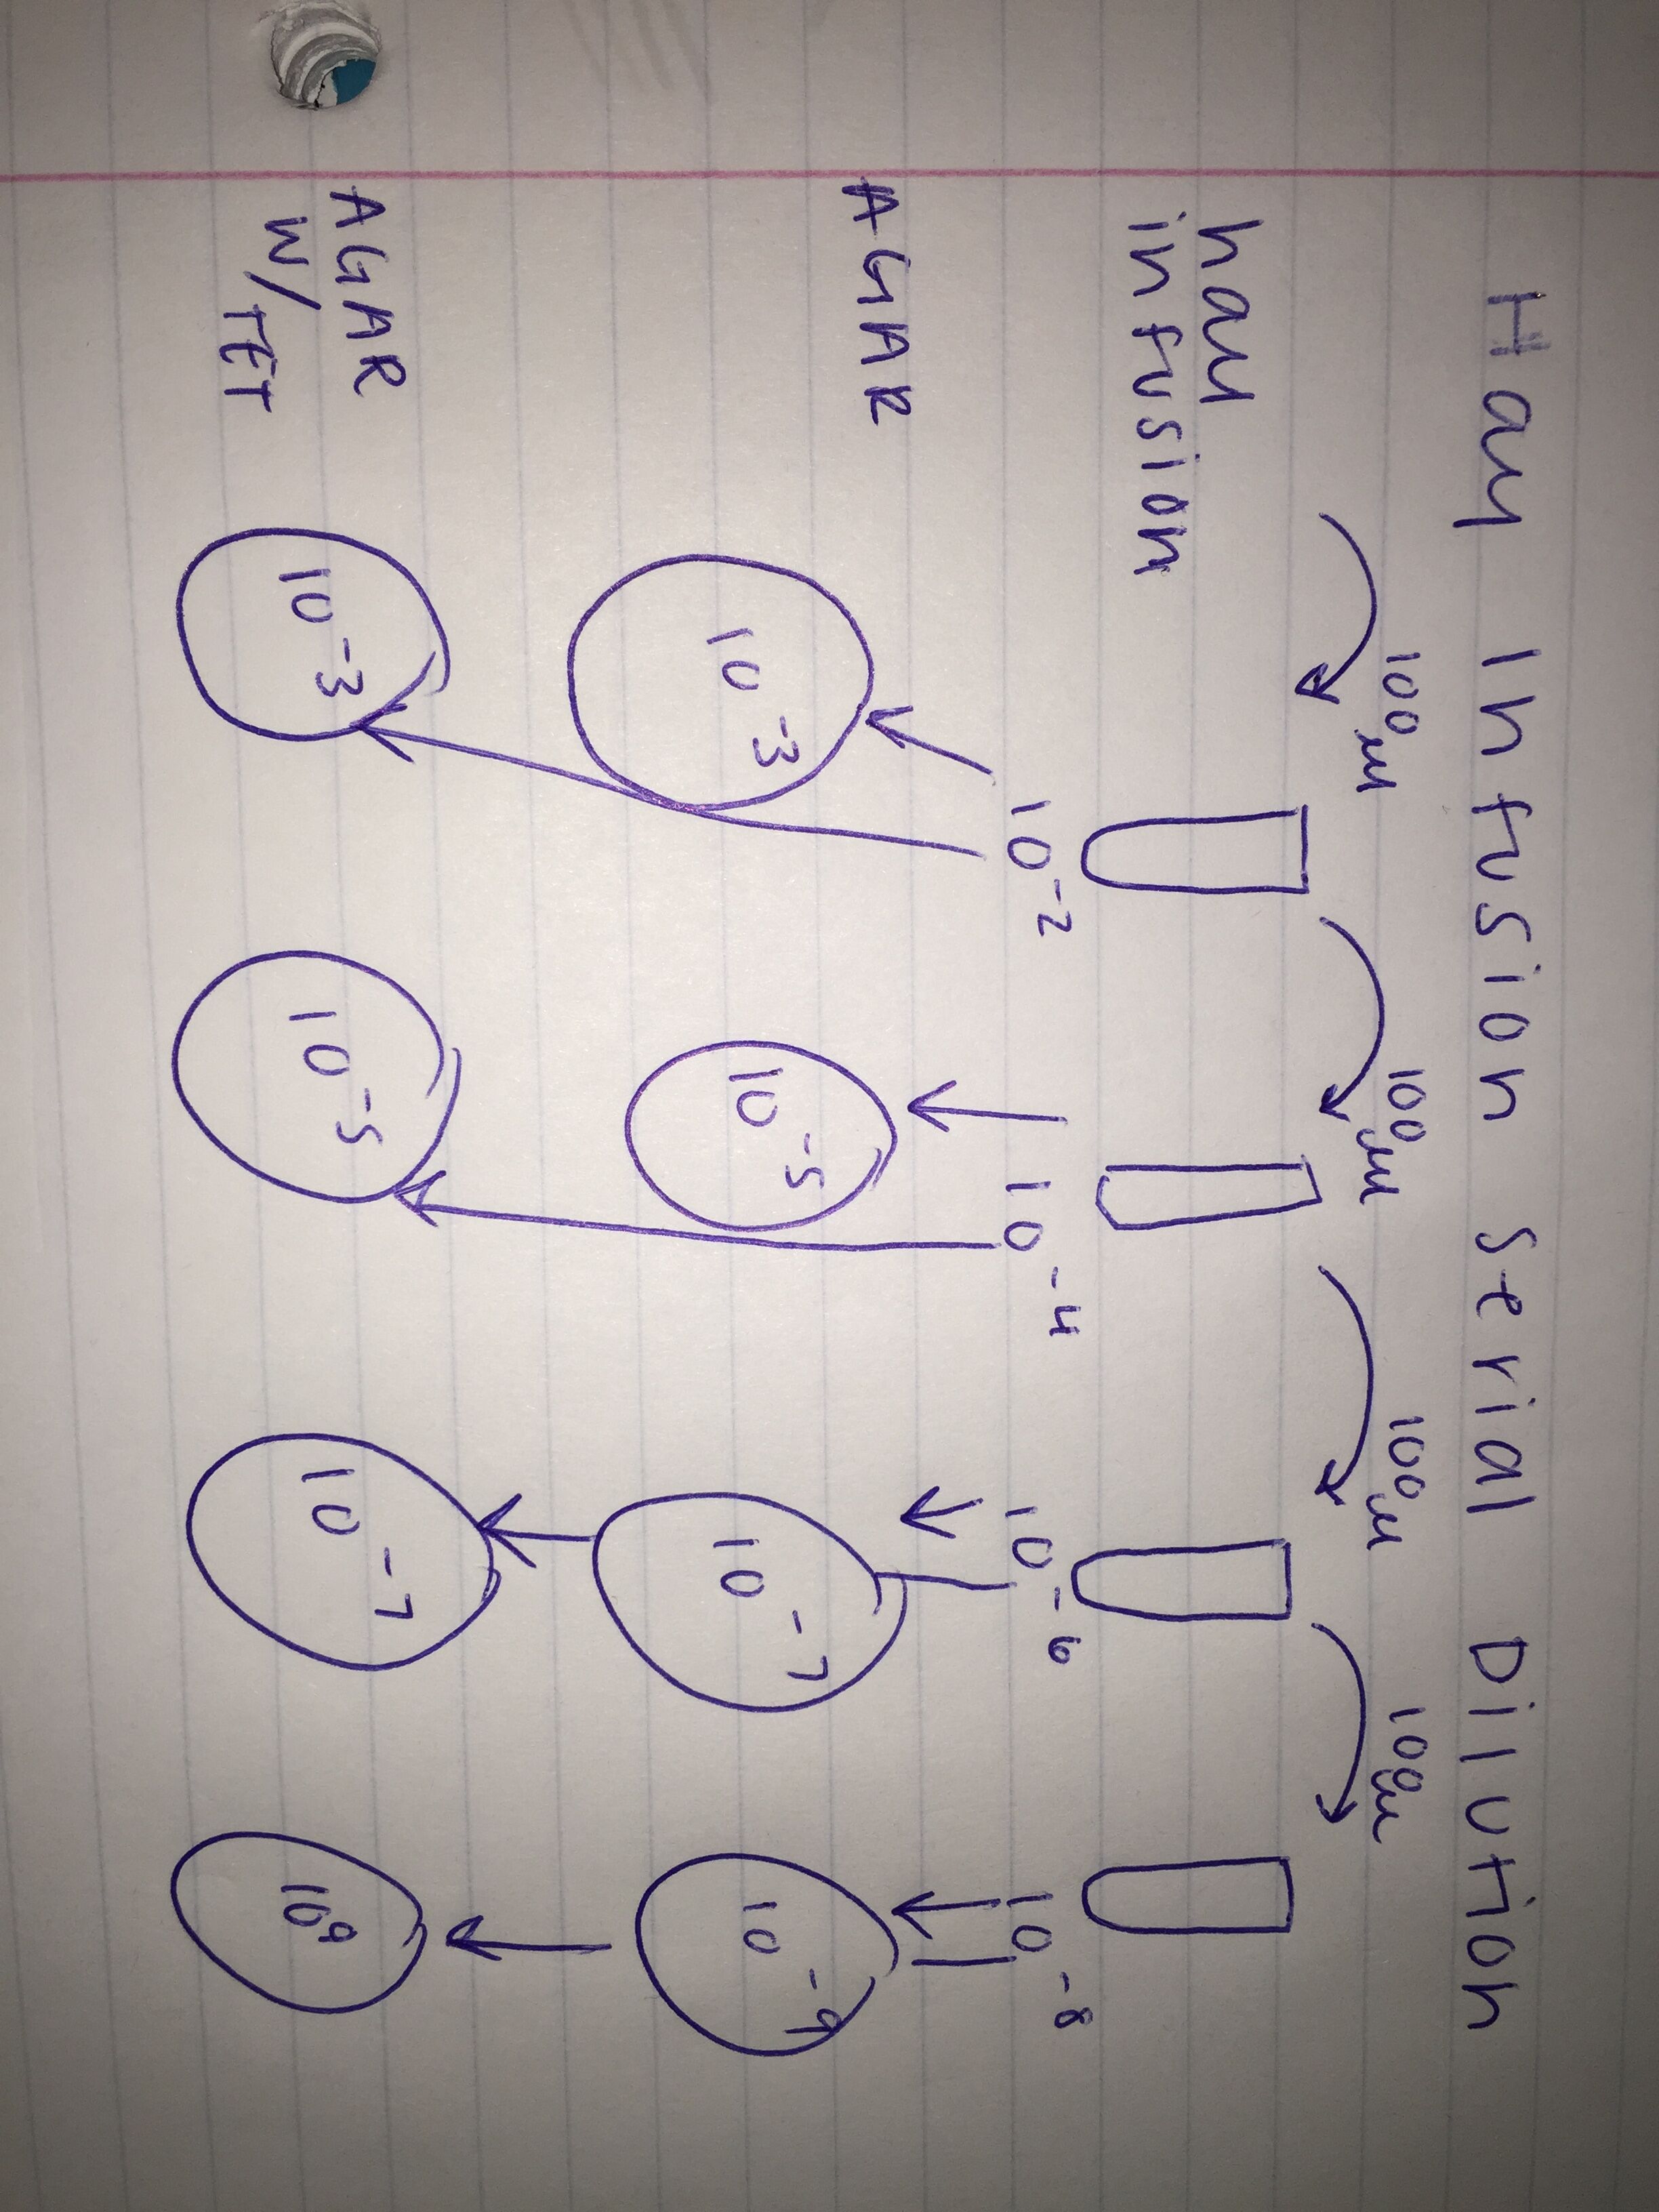 Hay Infusion Serial Dilution
100 µl 100 µl 100 µl 100 µl
hay
infusion
10^-2 10^-4 10^-6 10^-8
AGAR 10^-3 10^-5 10^-7 10^-9
AGAR
W/TET 10^-3 10^-5 10^-7 10^9